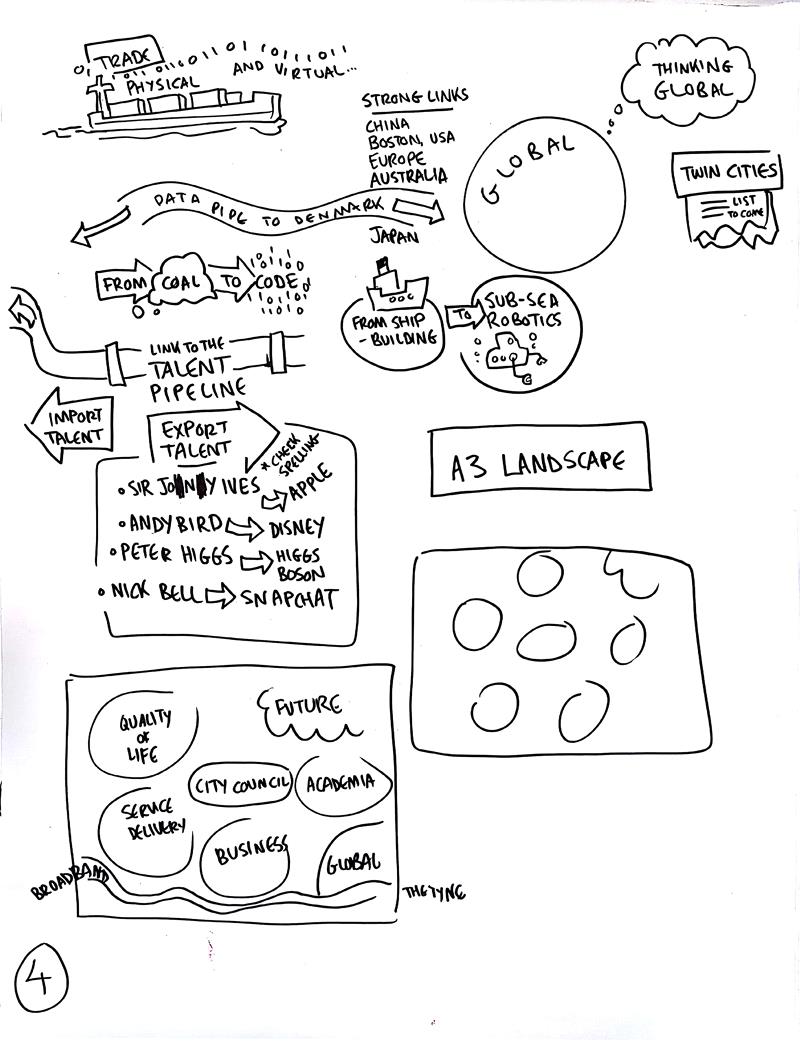 TRADE
PHYSICAL
AND VIRTUAL...
STRONG LINKS
CHINA
BOSTON, USA
EUROPE
AUSTRALIA
JAPAN
GLOBAL
THINKING
GLOBAL
TWIN CITIES
LIST
TO COME
DATA PIPE TO DENMARK
FROM COAL TO CODE
FROM SHIP
- BUILDING
TO
SUB-SEA
ROBOTICS
LINK TO THE
TALENT
PIPELINE
IMPORT
TALENT
EXPORT
TALENT
* CHECK
SPELLING
• SIR JONNY IVES
APPLE
• ANDY BIRD
DISNEY
• PETER HIGGS
HIGGS
BOSON
• NICK BELL
SNAPCHAT
A3 LANDSCAPE
QUALITY
OF
LIFE
FUTURE
CITY COUNCIL
ACADEMIA
SERVICE
DELIVERY
BUSINESS
GLOBAL
BROADBAND
THE TYNE
4